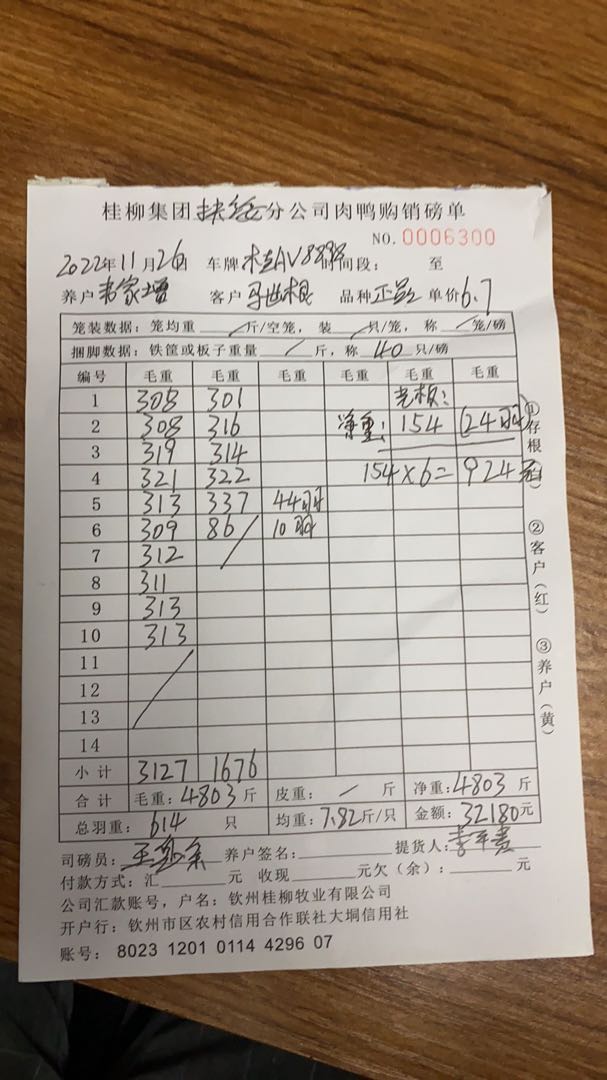 桂柳集团 分公司肉鸭购销磅单
NO. 0006300
2022年11月26日 车牌 桂AV 时间段： 至
养户 韦家增 客户 品种 正品 单价 6.7
笼装数据：笼均重 / 斤/空笼，装 / 只/笼，称 / 笼/磅
捆脚数据：铁筐或板子重量 / 斤，称 40 只/磅
编号 毛重 毛重 毛重 毛重 毛重 毛重
1 308 301
2 308 316 净重： 154 (24羽)
3 319 314
4 321 322 154×6= 924元
5 313 337 44羽
6 309 86 10羽
7 312 /
8 311
9 313
10 313
11
12 /
13
14
小计 3127 1676
合计 毛重：4803斤 皮重： / 斤 净重：4803斤
总羽重： 614 只 均重：7.82斤/只 金额：32180元
司磅员： 养户签名： 提货人：
付款方式：汇 元 收现 元欠（余）： 元
公司汇款账号，户名：钦州桂柳牧业有限公司
开户行：钦州市区农村信用合作联社大垌信用社
账号： 8023 1201 0114 4296 07
①存根（白）
②客户（红）
③养户（黄）